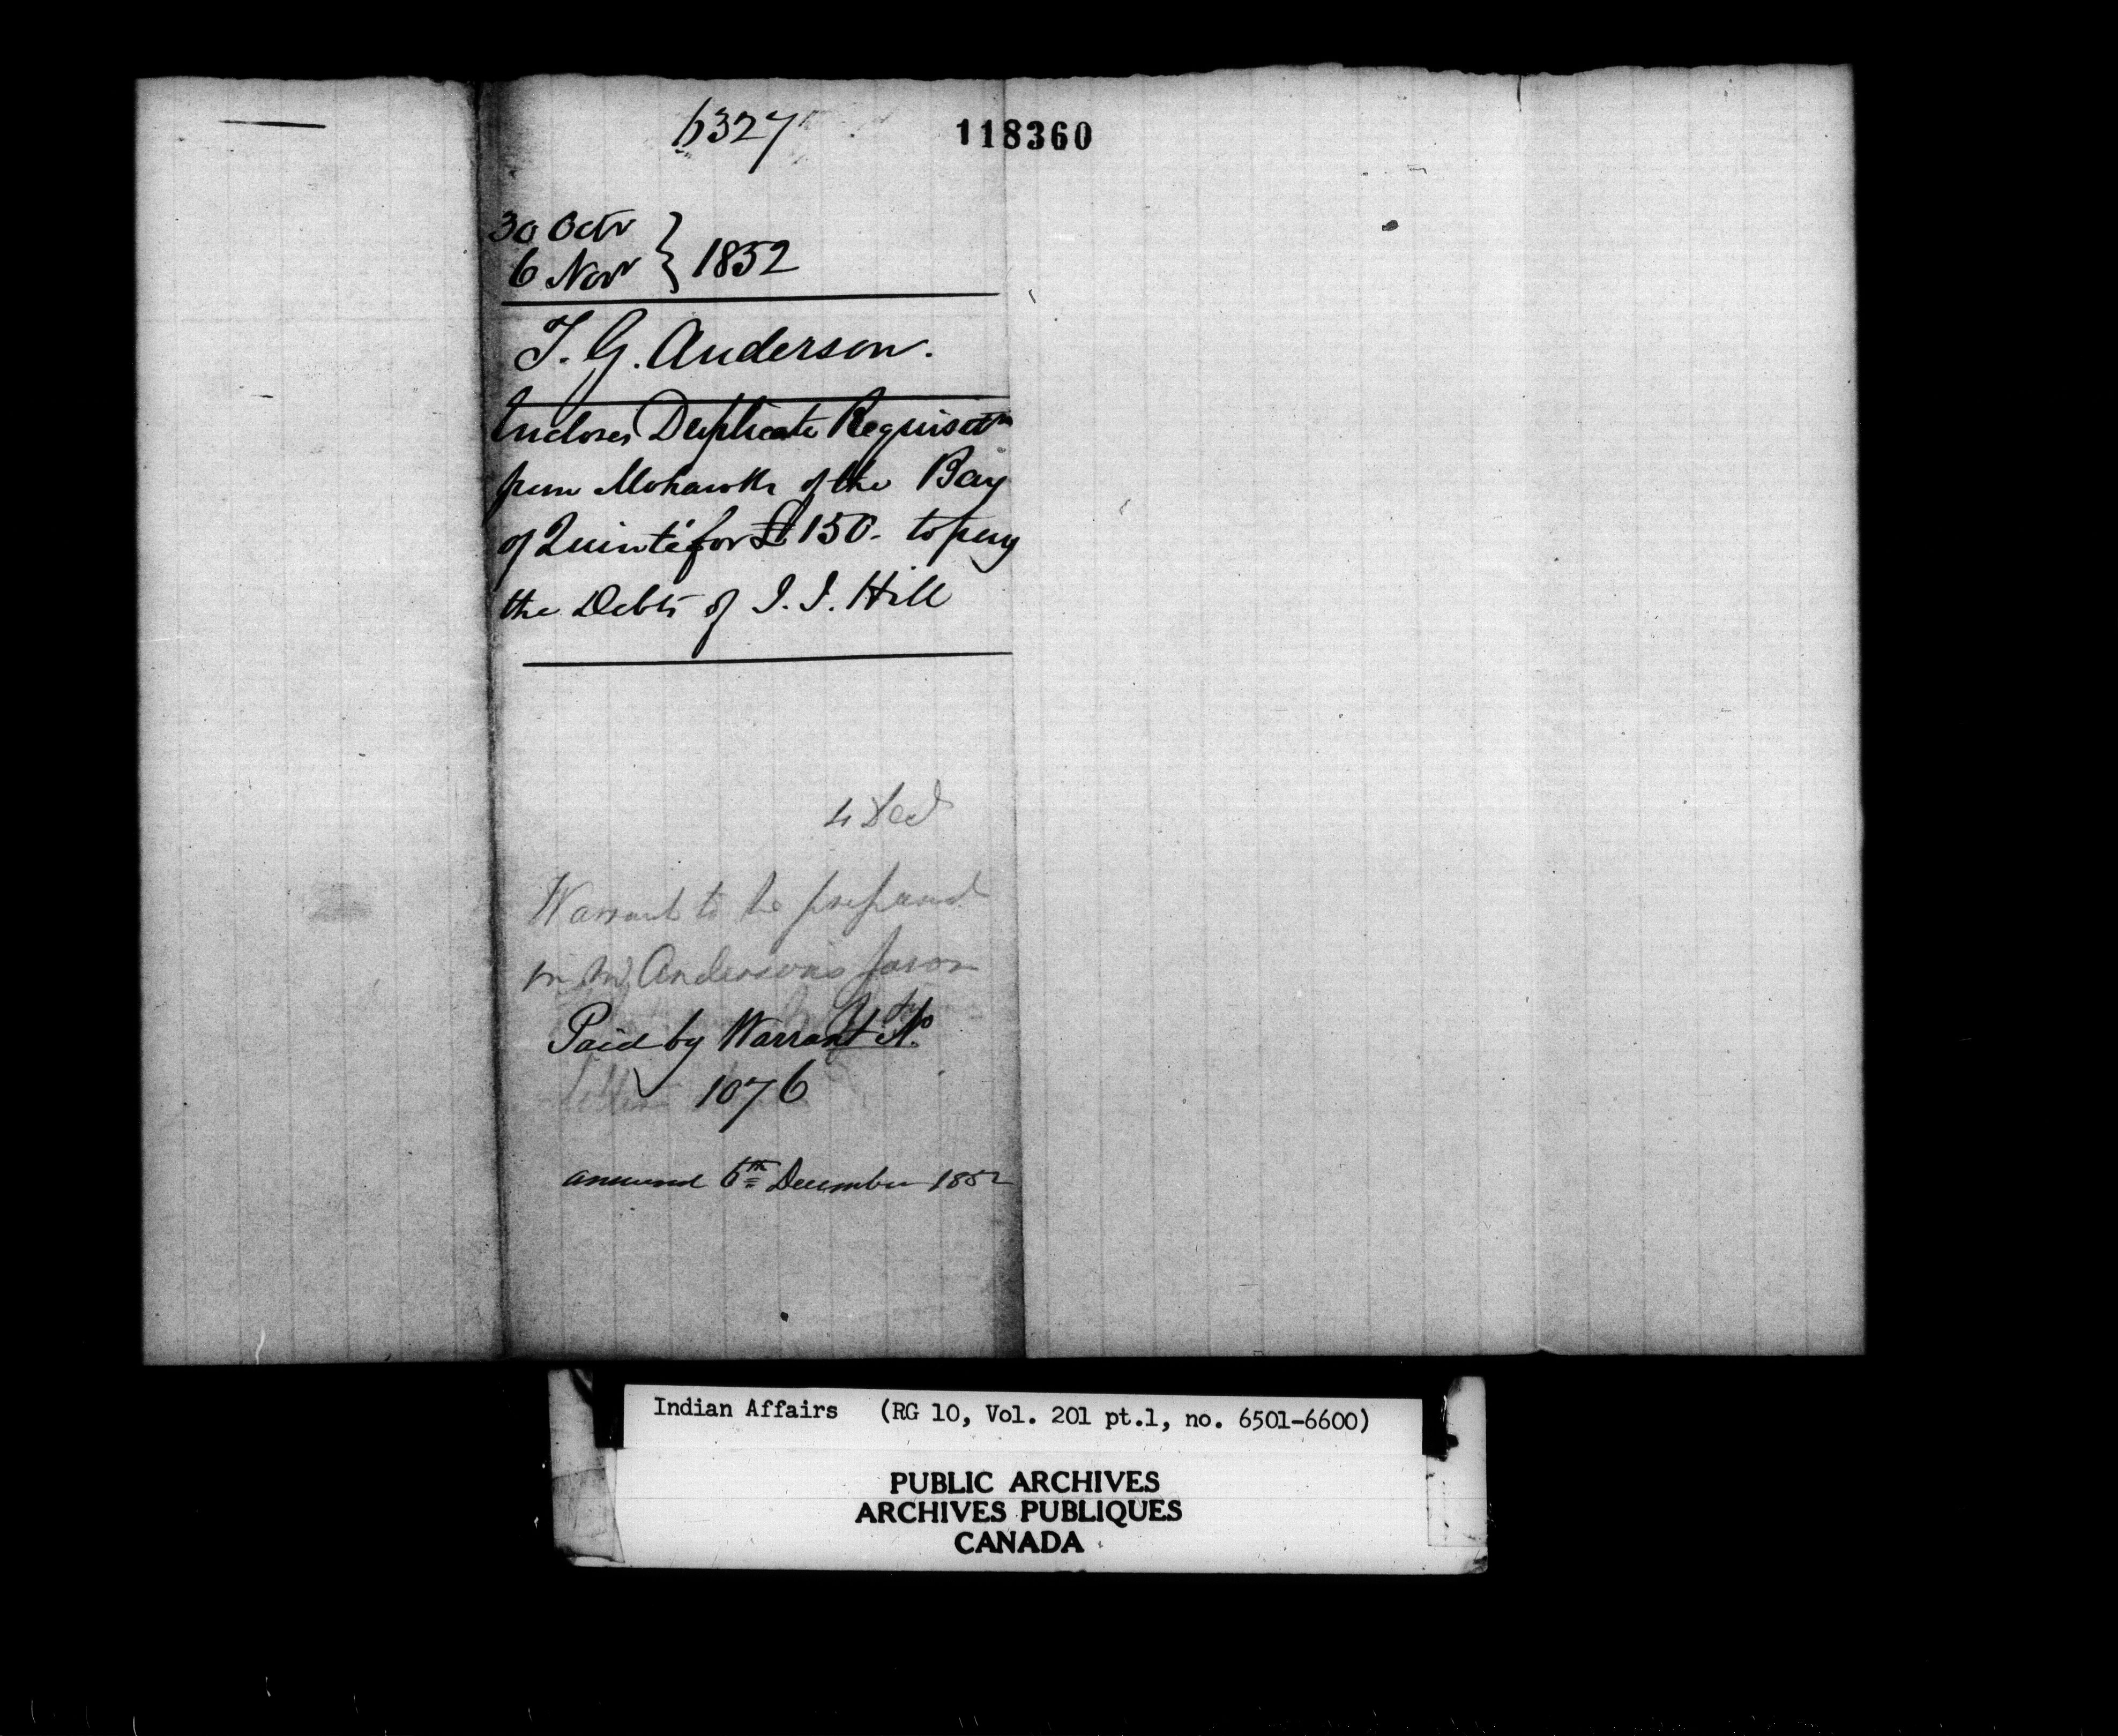 6327
118360
30 Octr
6 Novr } 1852
T. G. Anderson.
Encloses Duplicate Requisitn
from Mohawks of the Bay
of Quinté for £150- to pay
the Debts of J. J. Hill
4 Decr
Warrant to be prepared
in Mr Anderson's favor
Paid by Warrant No
1076
answered 6th December 1852
Indian Affairs (RG 10, Vol. 201 pt.1, no. 6501-6600)
PUBLIC ARCHIVES
ARCHIVES PUBLIQUES
CANADA